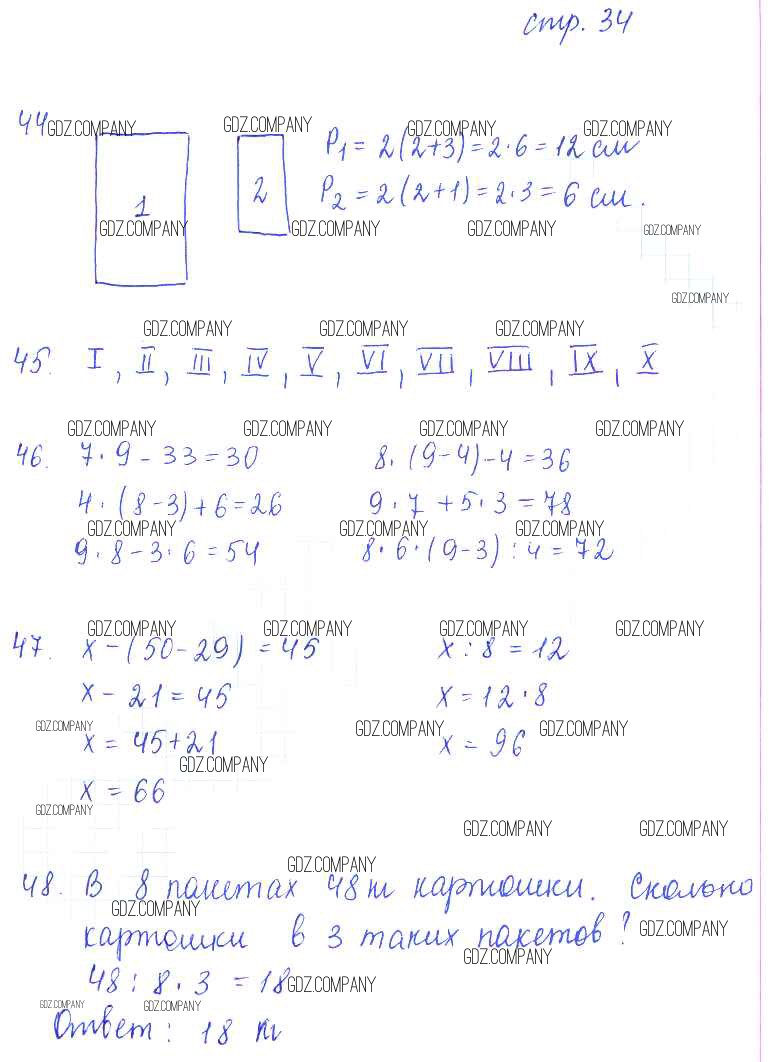 стр. 34
44
GDZ.COMPANY GDZ.COMPANY GDZ.COMPANY GDZ.COMPANY
P₁ = 2(2+3)=2·6=12 см
1 2 P₂ = 2(2+1)=2·3=6 см.
GDZ.COMPANY GDZ.COMPANY GDZ.COMPANY GDZ.COMPANY
GDZ.COMPANY
GDZ.COMPANY GDZ.COMPANY GDZ.COMPANY
45. I, II, III, IV, V, VI, VII, VIII, IX, X
GDZ.COMPANY GDZ.COMPANY GDZ.COMPANY GDZ.COMPANY
46. 7·9-33=30 8·(9-4)-4=36
4·(8-3)+6=26 9·7+5·3=78
GDZ.COMPANY GDZ.COMPANY GDZ.COMPANY
9·8-3·6=54 8·6·(9-3):4=72
GDZ.COMPANY GDZ.COMPANY GDZ.COMPANY GDZ.COMPANY
47. x-(50-29)=45 x:8=12
x-21=45 x=12·8
GDZ.COMPANY GDZ.COMPANY GDZ.COMPANY
x=45+21 x=96
GDZ.COMPANY
x=66
GDZ.COMPANY
GDZ.COMPANY GDZ.COMPANY
GDZ.COMPANY
48. В 8 пакетах 48 кг картошки. Сколько
GDZ.COMPANY
картошки в 3 таких пакетов? GDZ.COMPANY
GDZ.COMPANY
48:8·3=18 GDZ.COMPANY
GDZ.COMPANY GDZ.COMPANY
Ответ: 18 кг